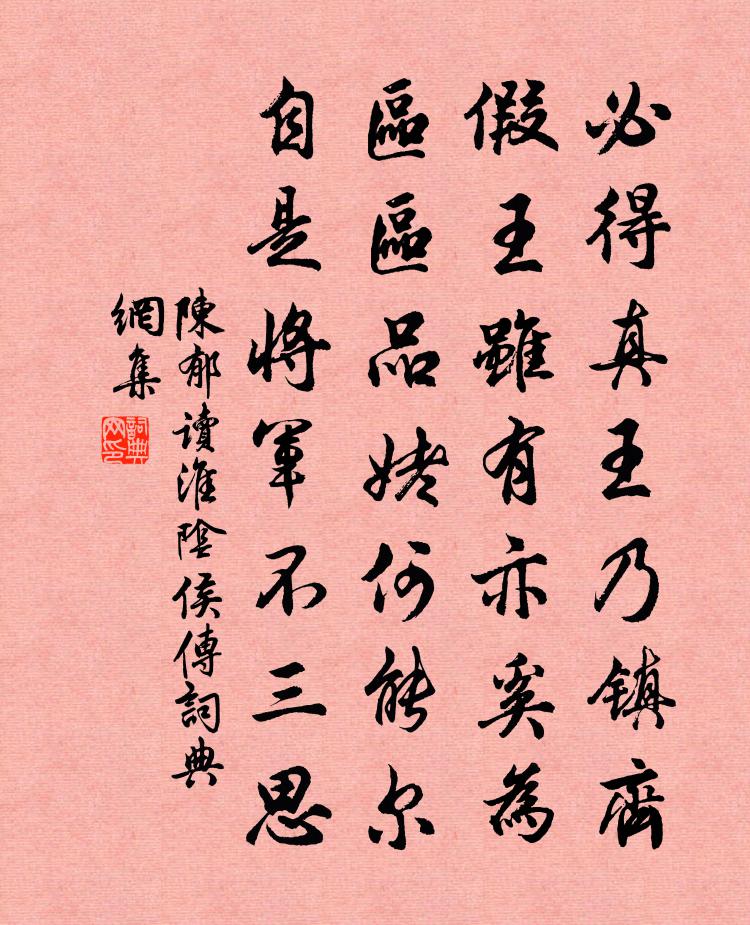 必得真王乃镇齊
假王雖有亦奚為
區區品姥何能尔
自是將軍不三思
陳郁讀淮陰侯傳詞典
網集
詞典
网印